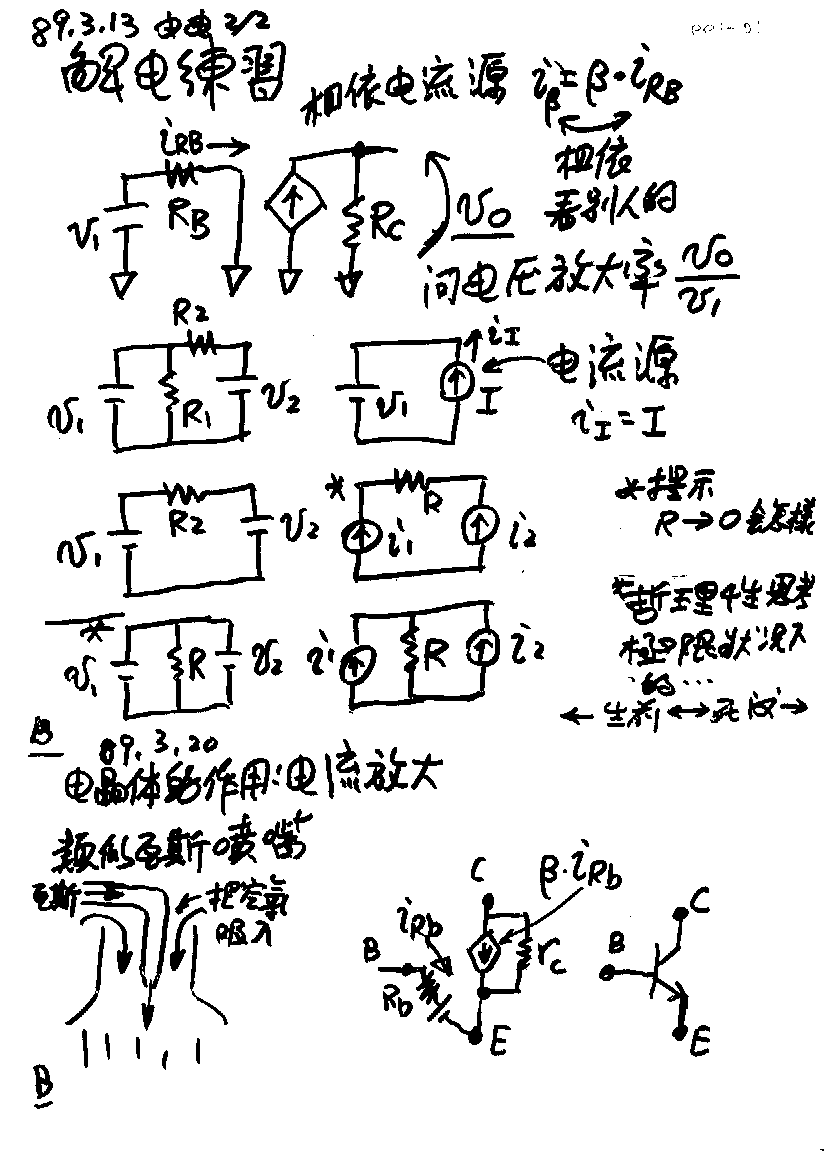 89.3.13 电电 2/2
解电練習
相依电流源 iβ=β·iRB
相依
看别人的
iRB→
v1 RB RC v0
问电压放大率 v0/v1
R2
v1 R1 v2
v1 I iI
电流源
iI=I
v1 R2 v2
* i1 R i2
*提示
R→0会怎樣
* v1 R v2
i1 R i2
*哲理4生思考
極限狀况入
的...
←生前↔死後→
B
89.3.20
电晶体的作用:电流放大
類似瓦斯噴嘴
瓦斯
把空氣
吸入
C β·iRb
iRb
B Rb rc
E
C
B
E
B